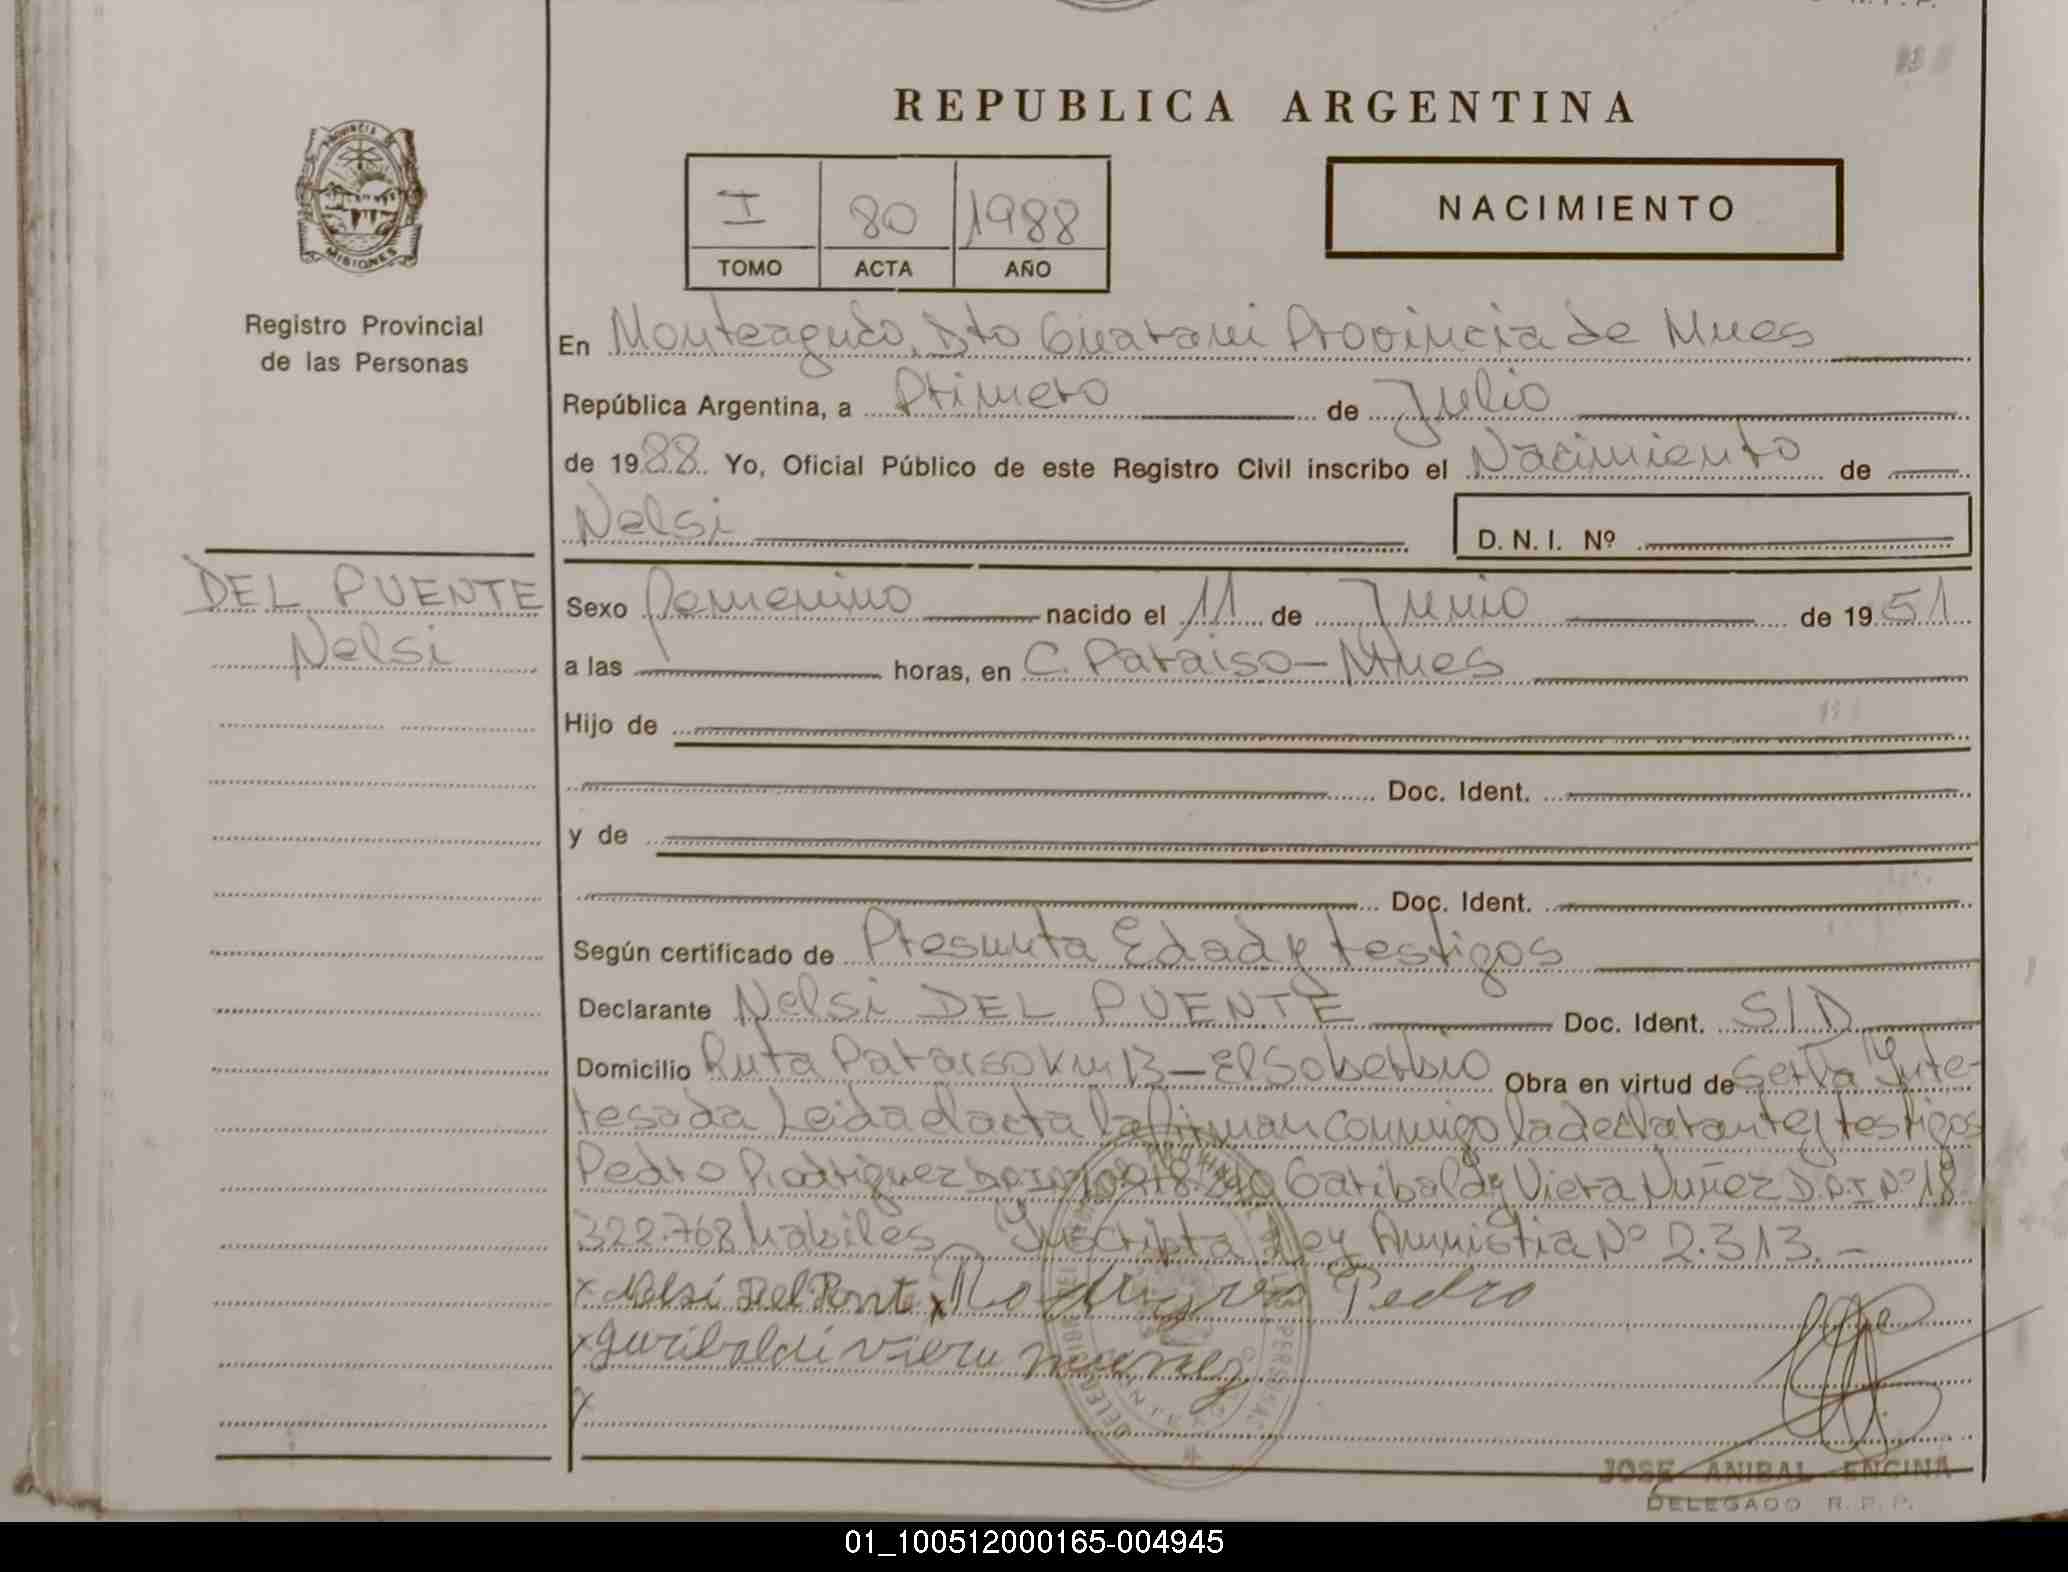 REPUBLICA ARGENTINA
PROVINCIA DE
MISIONES
Registro Provincial
de las Personas
I 80 1988
TOMO ACTA AÑO
NACIMIENTO
En Monteagudo, Dto Guarani Provincia de Mnes
República Argentina, a Primero de Julio
de 1988. Yo, Oficial Público de este Registro Civil inscribo el Nacimiento de
Nelsi D. N. I. Nº
DEL PUENTE
Nelsi
Sexo femenino nacido el 11 de Junio de 1951
a las horas, en C. Paraiso - Mnes
Hijo de
Doc. Ident.
y de
Doc. Ident.
Según certificado de Presunta Edad y testigos
Declarante Nelsi DEL PUENTE Doc. Ident. S/D
Domicilio Ruta Paraiso Km 13 - El Soberbio Obra en virtud de ser la Inte-
resada Leida el acta la firman conmigo la declarante y testigos
Pedro Rodriguez Garibaldy Viera Nuñez D.N.I Nº 18.
322.768 habiles Inscripta Ley Amnistia Nº 2.313. -
x Nelsi Del Pont x Rodriguez Pedro
x garibaldi viera nuñez
x
JOSE ANIBAL ENCINA
DELEGADO R. P. P.
01_100512000165-004945